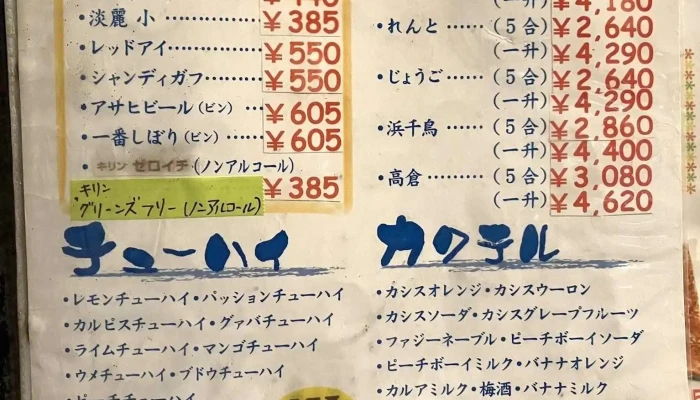 ・淡麗 小 ……………¥385
・レッドアイ……………¥550
・シャンディガフ………¥550
・アサヒビール(ビン) …¥605
・一番しぼり(ビン)……¥605
・キリン ゼロイチ(ノンアルコール)
キリン
グリーンズフリー(ノンアルコール) ¥385
(一升)¥4,180
・れんと……(5合)¥2,640
(一升)¥4,290
・じょうご……(5合)¥2,640
(一升)¥4,290
・浜千鳥……(5合)¥2,860
(一升)¥4,400
・高倉……(5合)¥3,080
(一升)¥4,620
チューハイ
・レモンチューハイ・パッションチューハイ
・カルピスチューハイ・グァバチューハイ
・ライムチューハイ・マンゴチューハイ
・ウメチューハイ・ブドウチューハイ
・ピーチチューハイ
カクテル
・カシスオレンジ・カシスウーロン
・カシスソーダ・カシスグレープフルーツ
・ファジーネーブル・ピーチボーイソーダ
・ピーチボーイミルク・バナナオレンジ
・カルアミルク・梅酒・バナナミルク